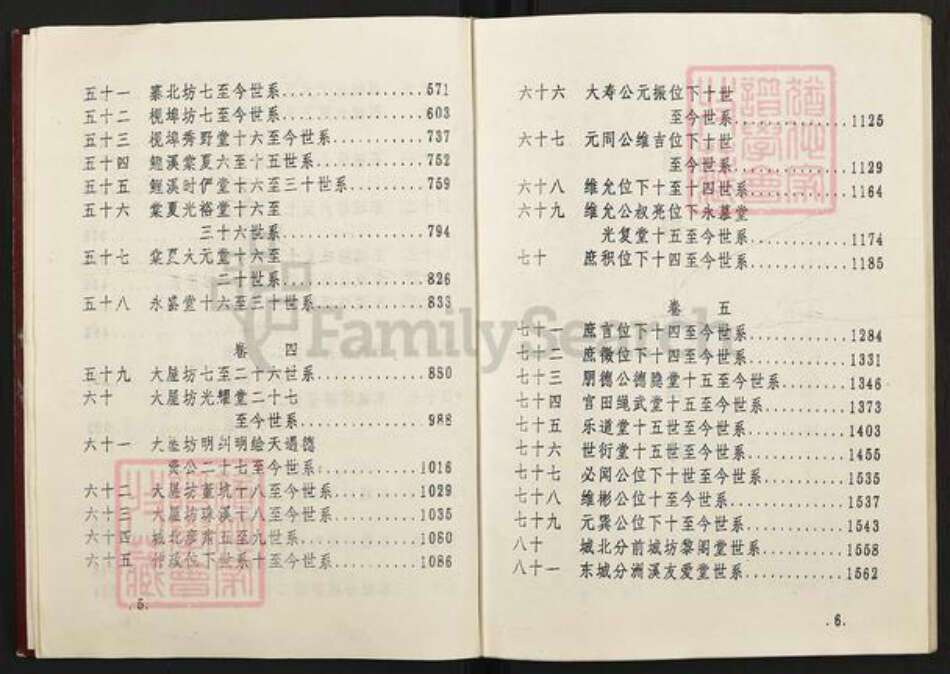 五十一 寨北坊七至今世系..................571
五十二 枧埠坊七至今世系..................603
五十三 枧埠秀野堂十六至今世系............737
五十四 鲍溪棠夏六至十五世系..............752
五十五 鲍溪时俨堂十六至三十世系..........759
五十六 棠夏光裕堂十六至
三十六世系..................794
五十七 棠夏大元堂十六至
二十世系....................826
五十八 永盛堂十六至三十世系..............833
卷 四
五十九 大屋坊七至二十六世系..............880
六十 大屋坊光耀堂二十七
至今世系..................988
六十一 大屋坊明 明绘天遇德
公二十七至今世系............1016
六十二 大屋坊董坑十八至今世系............1029
六十三 大屋坊 溪十八至今世系............1035
六十四 城北 五至九世系................1080
六十五 位下 世系十至今世系............1086
.5.
六十六 大寿公元振位下十世
至今世系..............1125
六十七 元同公维吉位下十世
至今世系..............1129
六十八 维允位下十至十四世系............1164
六十九 维允公叔亮位下永慕堂
光复堂十五至今世系............1174
七十 庶积位下十四至今世系............1185
卷 五
七十一 庶言位下十四至今世系............1284
七十二 庶徵位下十四至今世系............1331
七十三 朋德公德隐堂十五至今世系........1346
七十四 官田绳武堂十五至今世系..........1373
七十五 乐道堂十五世至今世系............1403
七十六 世衍堂十五世至今世系............1455
七十七 必闻公位下十世至今世系..........1535
七十八 维彬公位十至今世系..............1537
七十九 元龚公位下十至今世系............1543
八十 城北分前城坊黎阁堂世系..........1558
八十一 东城分洲溪友爱堂世系............1562
.6.
FamilySearch